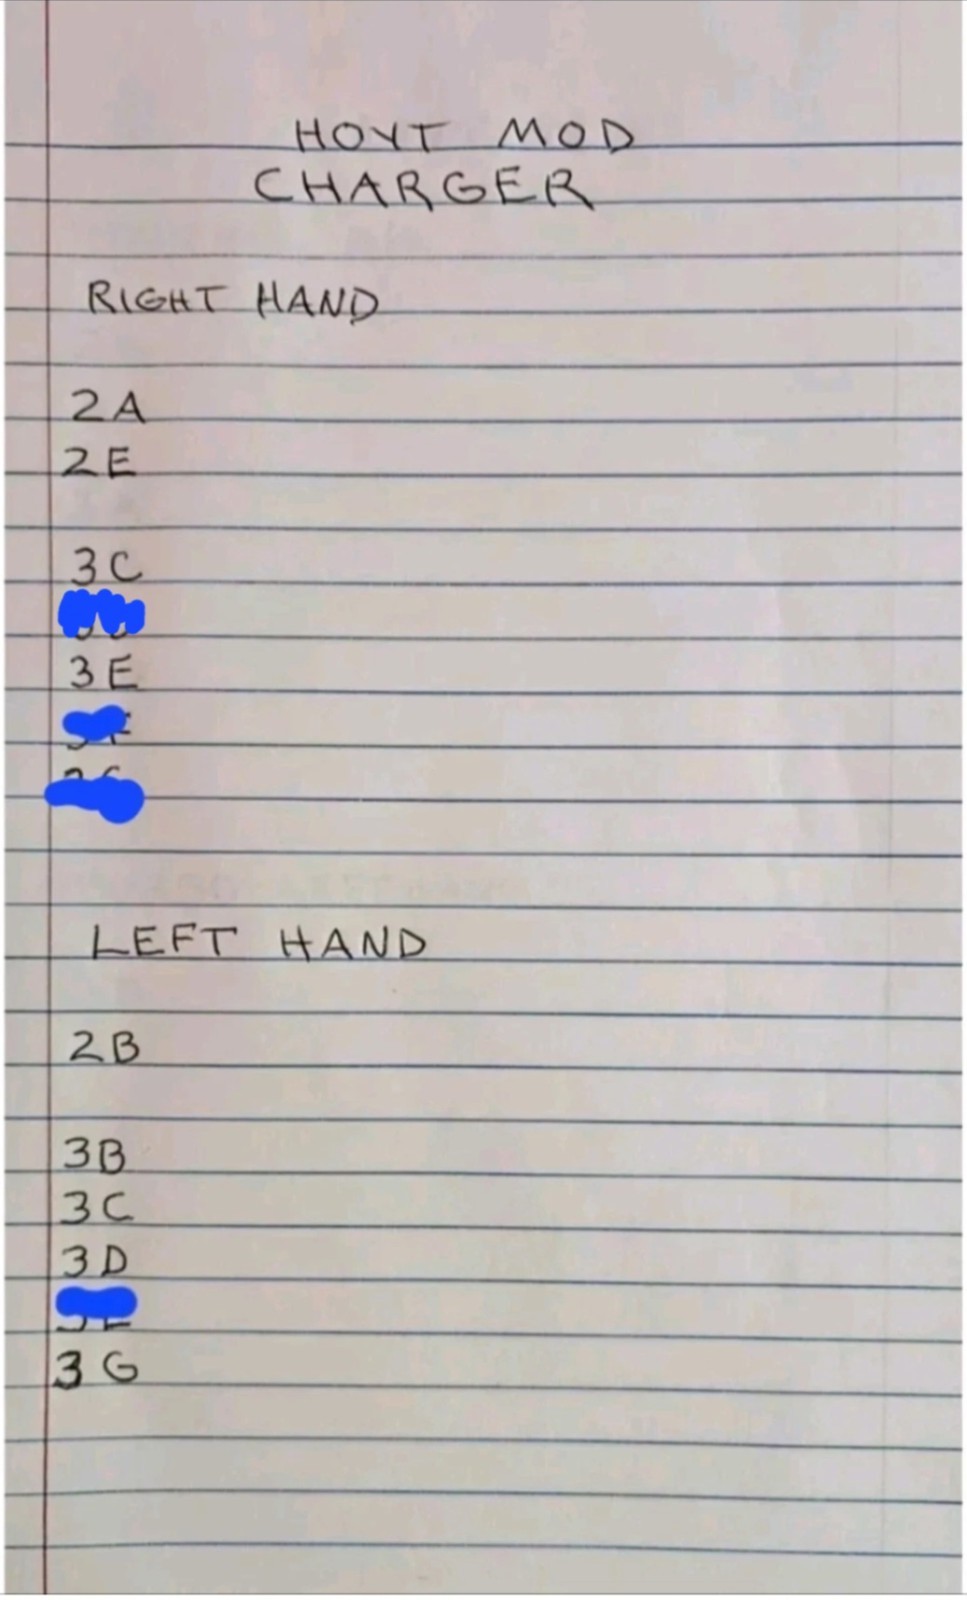 HOYT MOD
CHARGER
RIGHT HAND
2A
2E
3C
3E
LEFT HAND
2B
3B
3C
3D
3G